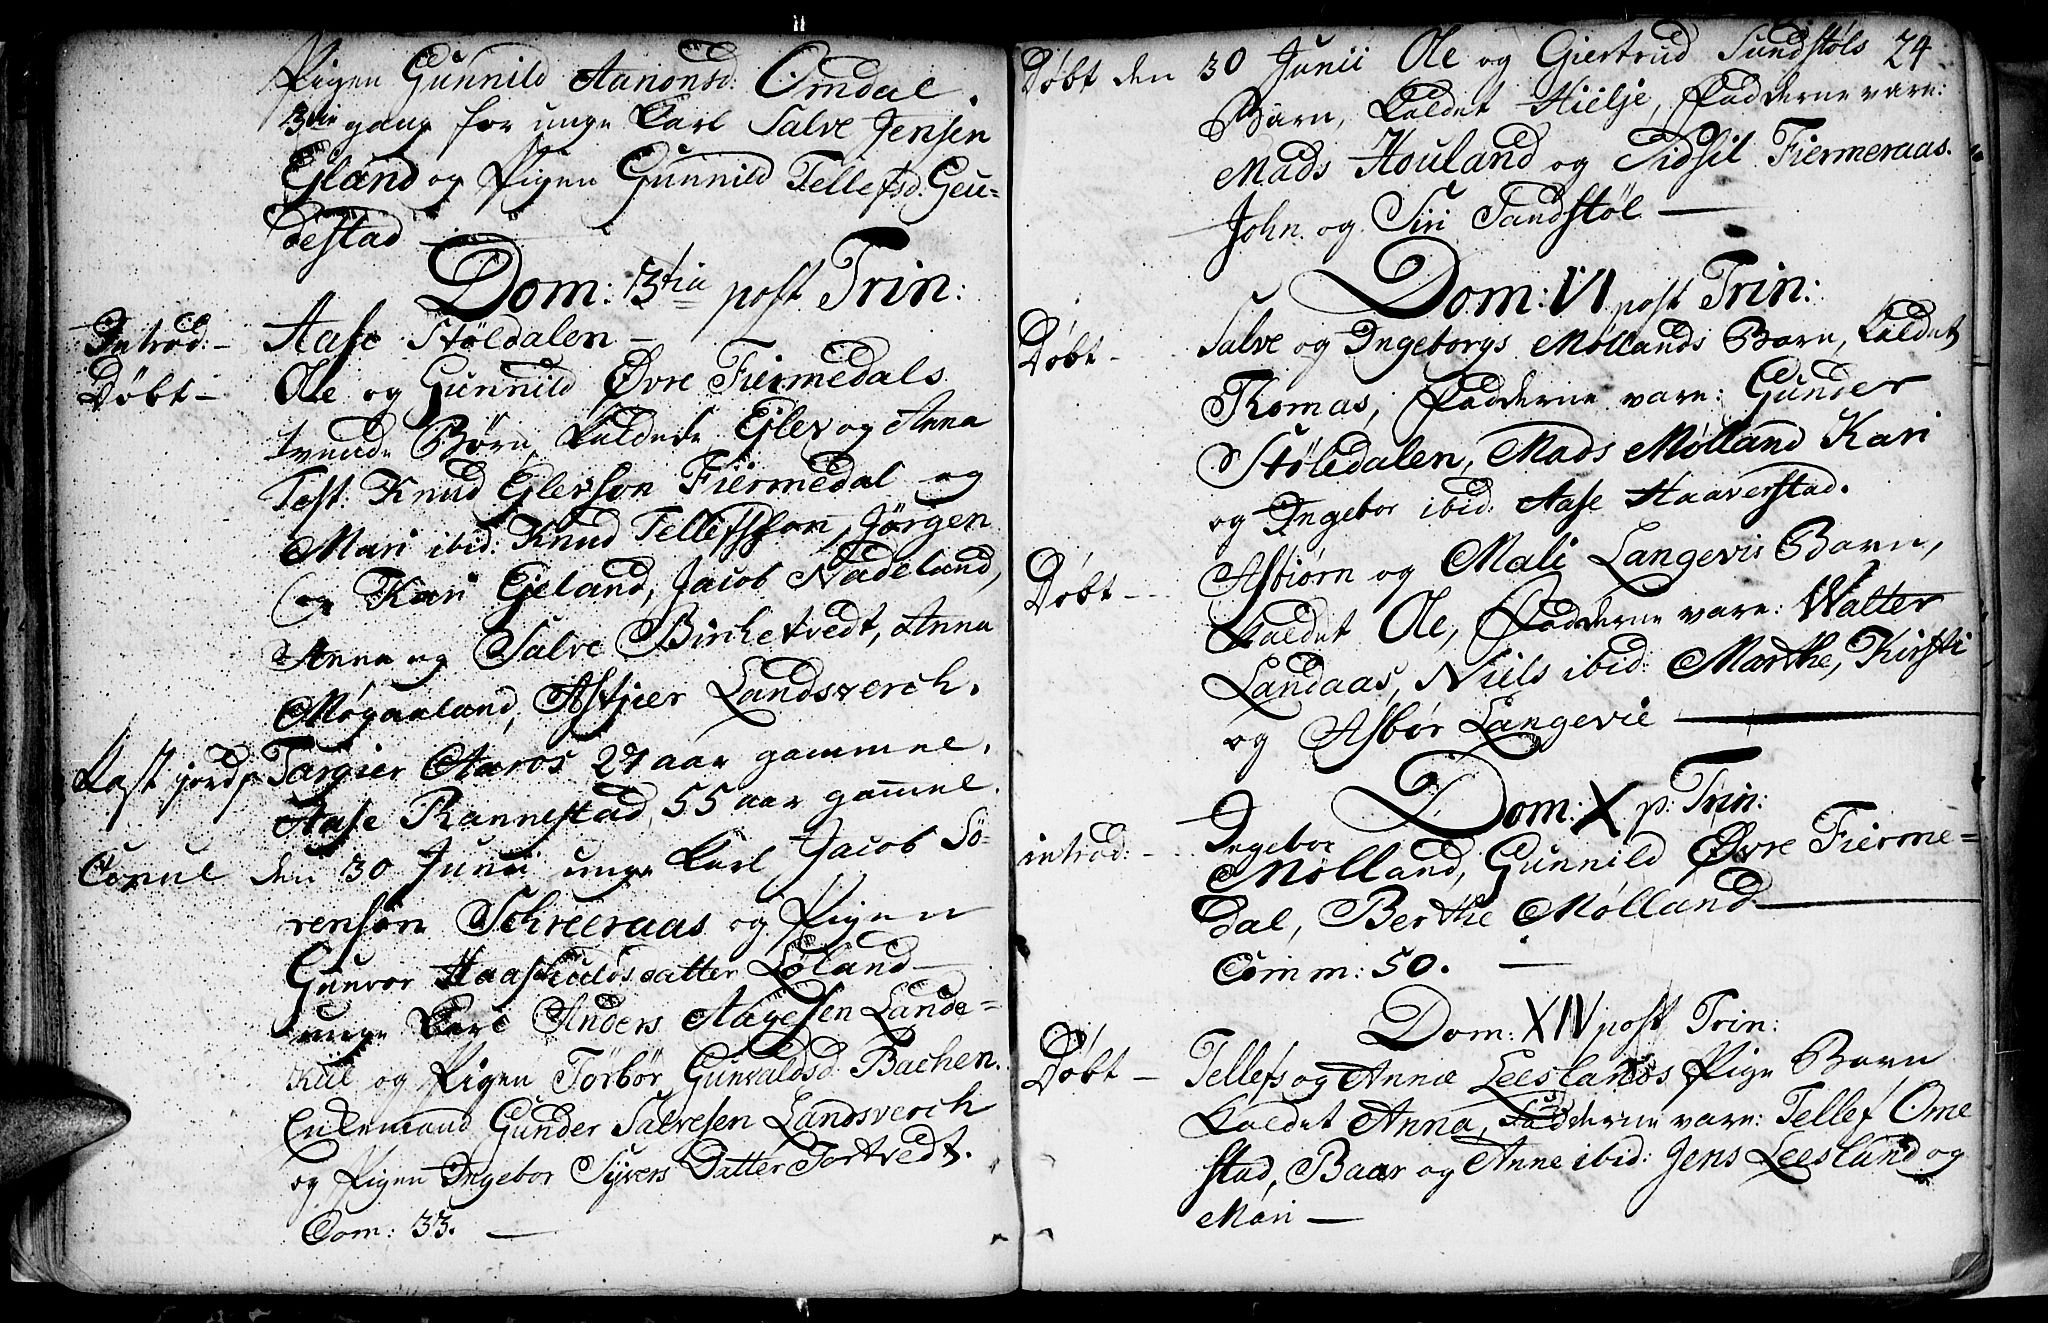 Pigen Gunnild Aanonsd. Omdal.
3die gang for unge Karl Salve Jensen
Egland og Pigen Gunnild Tellefsd. Geu-
destad
Dom: 3tia post Trin:
Introd: – Aase Stöldalen –
Döbt – Ole og Gunnild Øvre Fiermedals
tvende Børn kaldede Ejlev og Anna
Test. Knud Eglevson Fiermedal og
Mari ibid. Knud Tellefsson, Jørgen
og Kari Egeland, Jacob Nadeland,
Anna og Salve Birchetvedt, Anna
Møgaaland, Astjer Landsverch.
Kast jordp Targier Aaros 27 aar gammel.
Aase Rannestad, 55 aar gam̄el.
Copul den 30 Junii unge Karl Jacob Sö-
renson Schreeraas og Pigen
Gunvor Haaskuldsdatter Egland –
unge Karl Anders Aagesen Lande-
Kiil og Pigen Törbör Gunvaldsd. Bachen.
Enkemand Gunder Salvesen Landsverch
og Pigen Ingebor Syvers Datter Tortvedt.
Com: 33. –
24
Döbt den 30 Junii Ole og Giertrud Sundstöls
Barn, kaldet Hielje, Fadderne vare:
Mads Houland og Sidsil Fiermeraas.
John og Siri Sandstöl –
Dom: VI post Trin:
Döbt – Salve og Ingeborgs Møllands Barn, kaldet
Thomas, Fadderne vare: Gunder
Støledalen, Mads Mølland Kari
og Ingebor ibid: Aase Haaverstad.
Döbt – Asbiørn og Mali Langevis Barn,
kaldet Ole, Fadderne vare: Walter
Landaas, Niels ibid: Marthe, Kirsti
og Asbør Langevie –
Dom: X p: Trin:
introd: – Ingebor
Mølland, Gunnild Øvre Fierme-
dal, Berthe Mølland –
Comm: 50. –
Dom: XIV post Trin:
Döbt – Tellefs og Annæ Leeslands Pige Barn
kaldet Anna, Fadderne vare: Tellef Ome
stad, Baar og Anne ibid: Jens Leesland og
Mari –